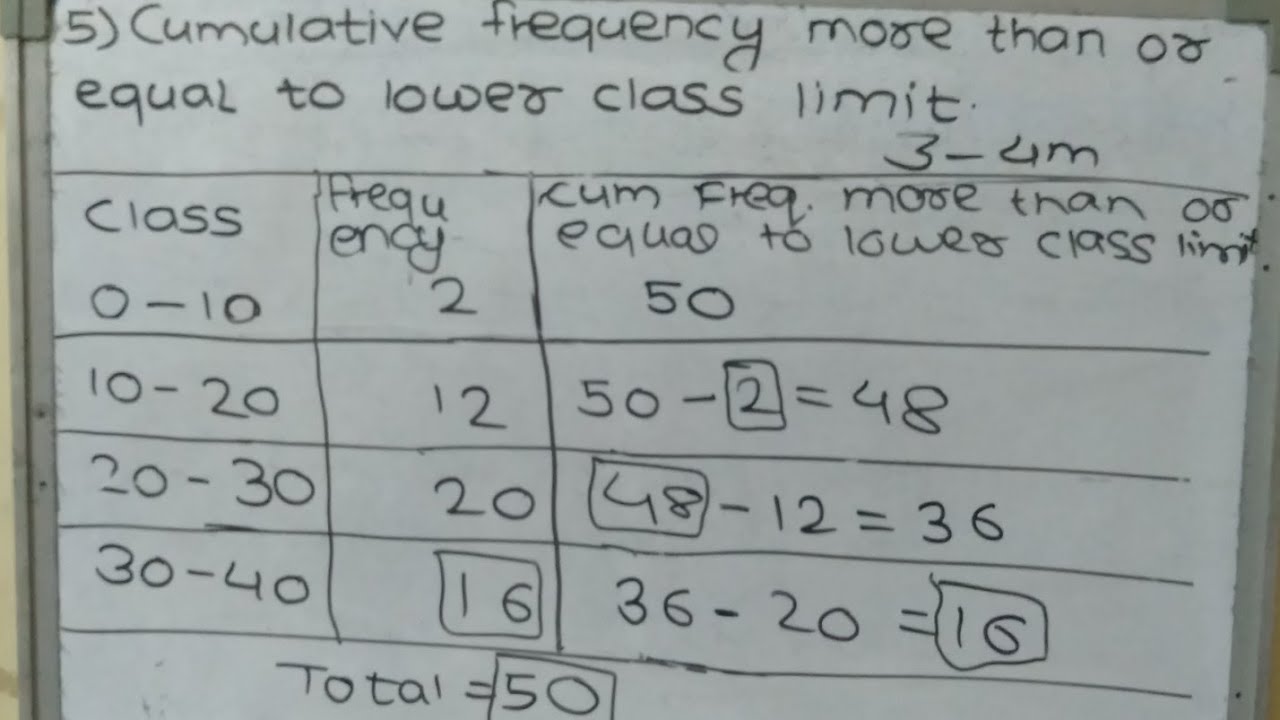 5) Cumulative frequency more than or
equal to lower class limit.
3-4m
Class
Frequ
ency
cum Freq. more than or
equal to lower class limit.
0-10 2 50
10-20 12 50-2=48
20-30 20 48-12=36
30-40 16 36-20=16
Total=50